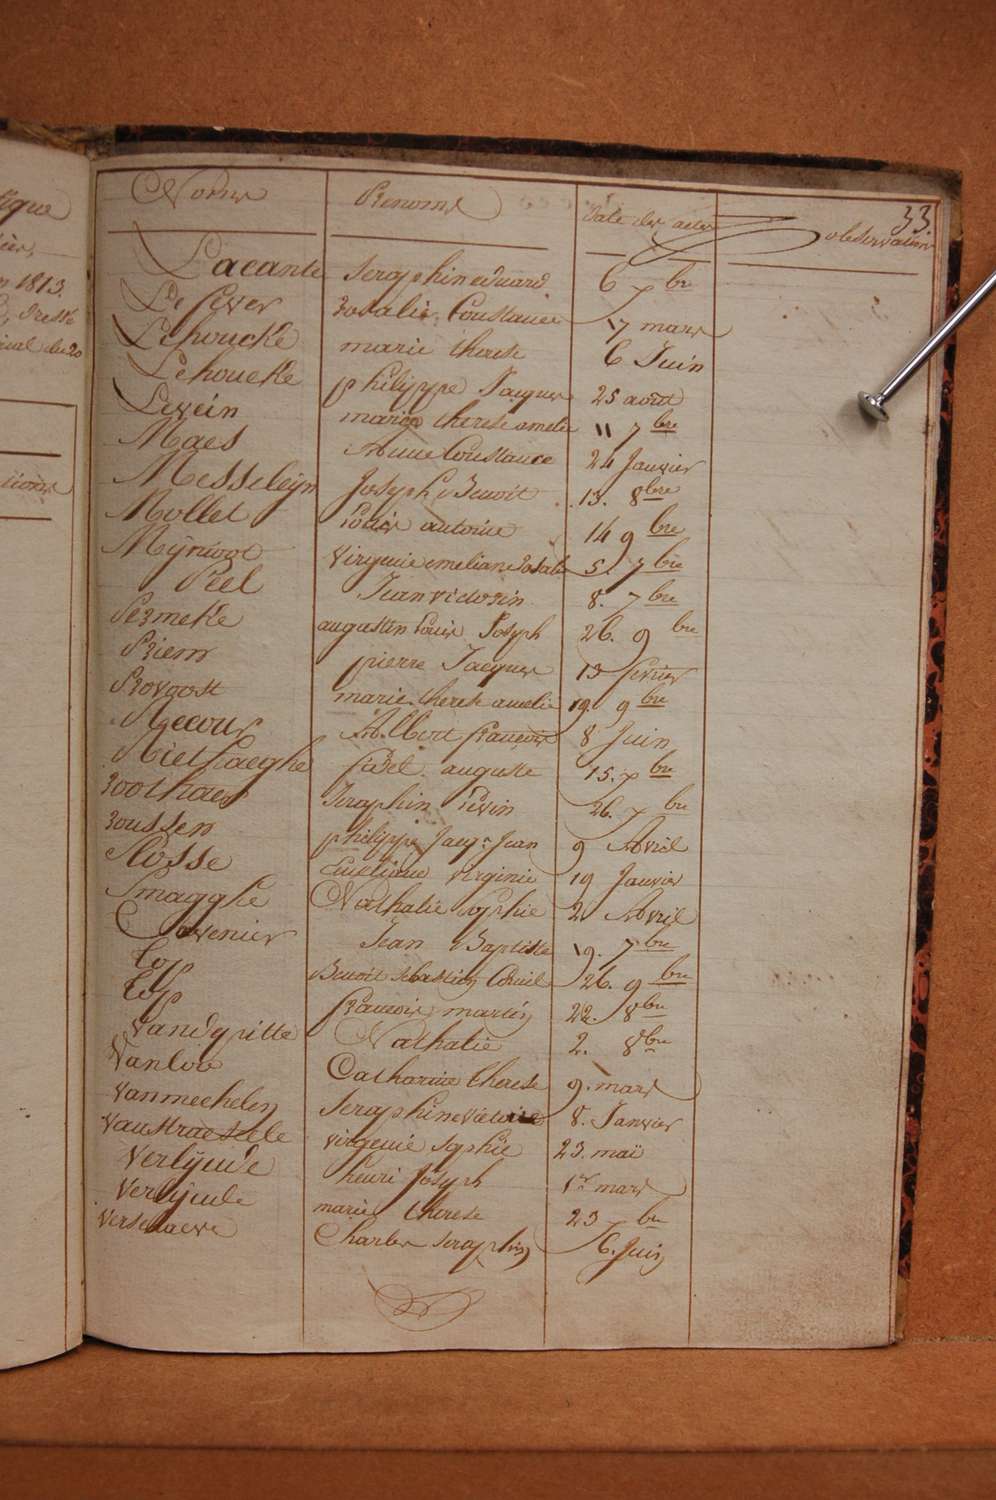 tique
n 1813.
Noms Prenoms Date des actes observations 33
Lacante Seraphin eduard 6 7bre
Le fever Rosalie Constance 17 mars
Lehoucke marie therese 6 Juin
Lehoucke philippe Jacques 25 août
Levein marie therese amelie 11 7bre
Maes Anne Constance 24 Janvier
Messeleÿn Joseph Benoit 13. 8bre
Mollet Louis antoine 14 9bre
Mÿnwot virginie emeliane Rosalie 5. 7bre
Piel Jean victorin 8. 7bre
Permeke augustin Louis Joseph 26. 9bre
Priem pierre Jacques 13 fevrier
Provoost marie therese amelie 19 9bre
Recour Albert françois 8 Juin
Riethaeghe fidel auguste 15. 7bre
Roothaes Seraphin Livin 26. 7bre
Roussen philippe Jacqs Jean 9 Avril
Slosse Eugenie virginie 19 Janvier
Smagghe Nathalie Sophie 2 Avril
Tavenier Jean Baptiste 19. 7bre
Top Benoit Sebastien Corneil 26. 9bre
Top françois martin 22. 8bre
Vandepitte Nathalie 2. 8bre
Vanloo Catharine therese 9. mars
Vanmechelen Seraphine victoire 8. Janvier
Vanstraeseele virgenie Sophie 23. maï
Verlÿnde henri Joseph 1er mars
Verlÿnde marie therese 23 7bre
Verschaeve Charles Seraphin 6. Juin